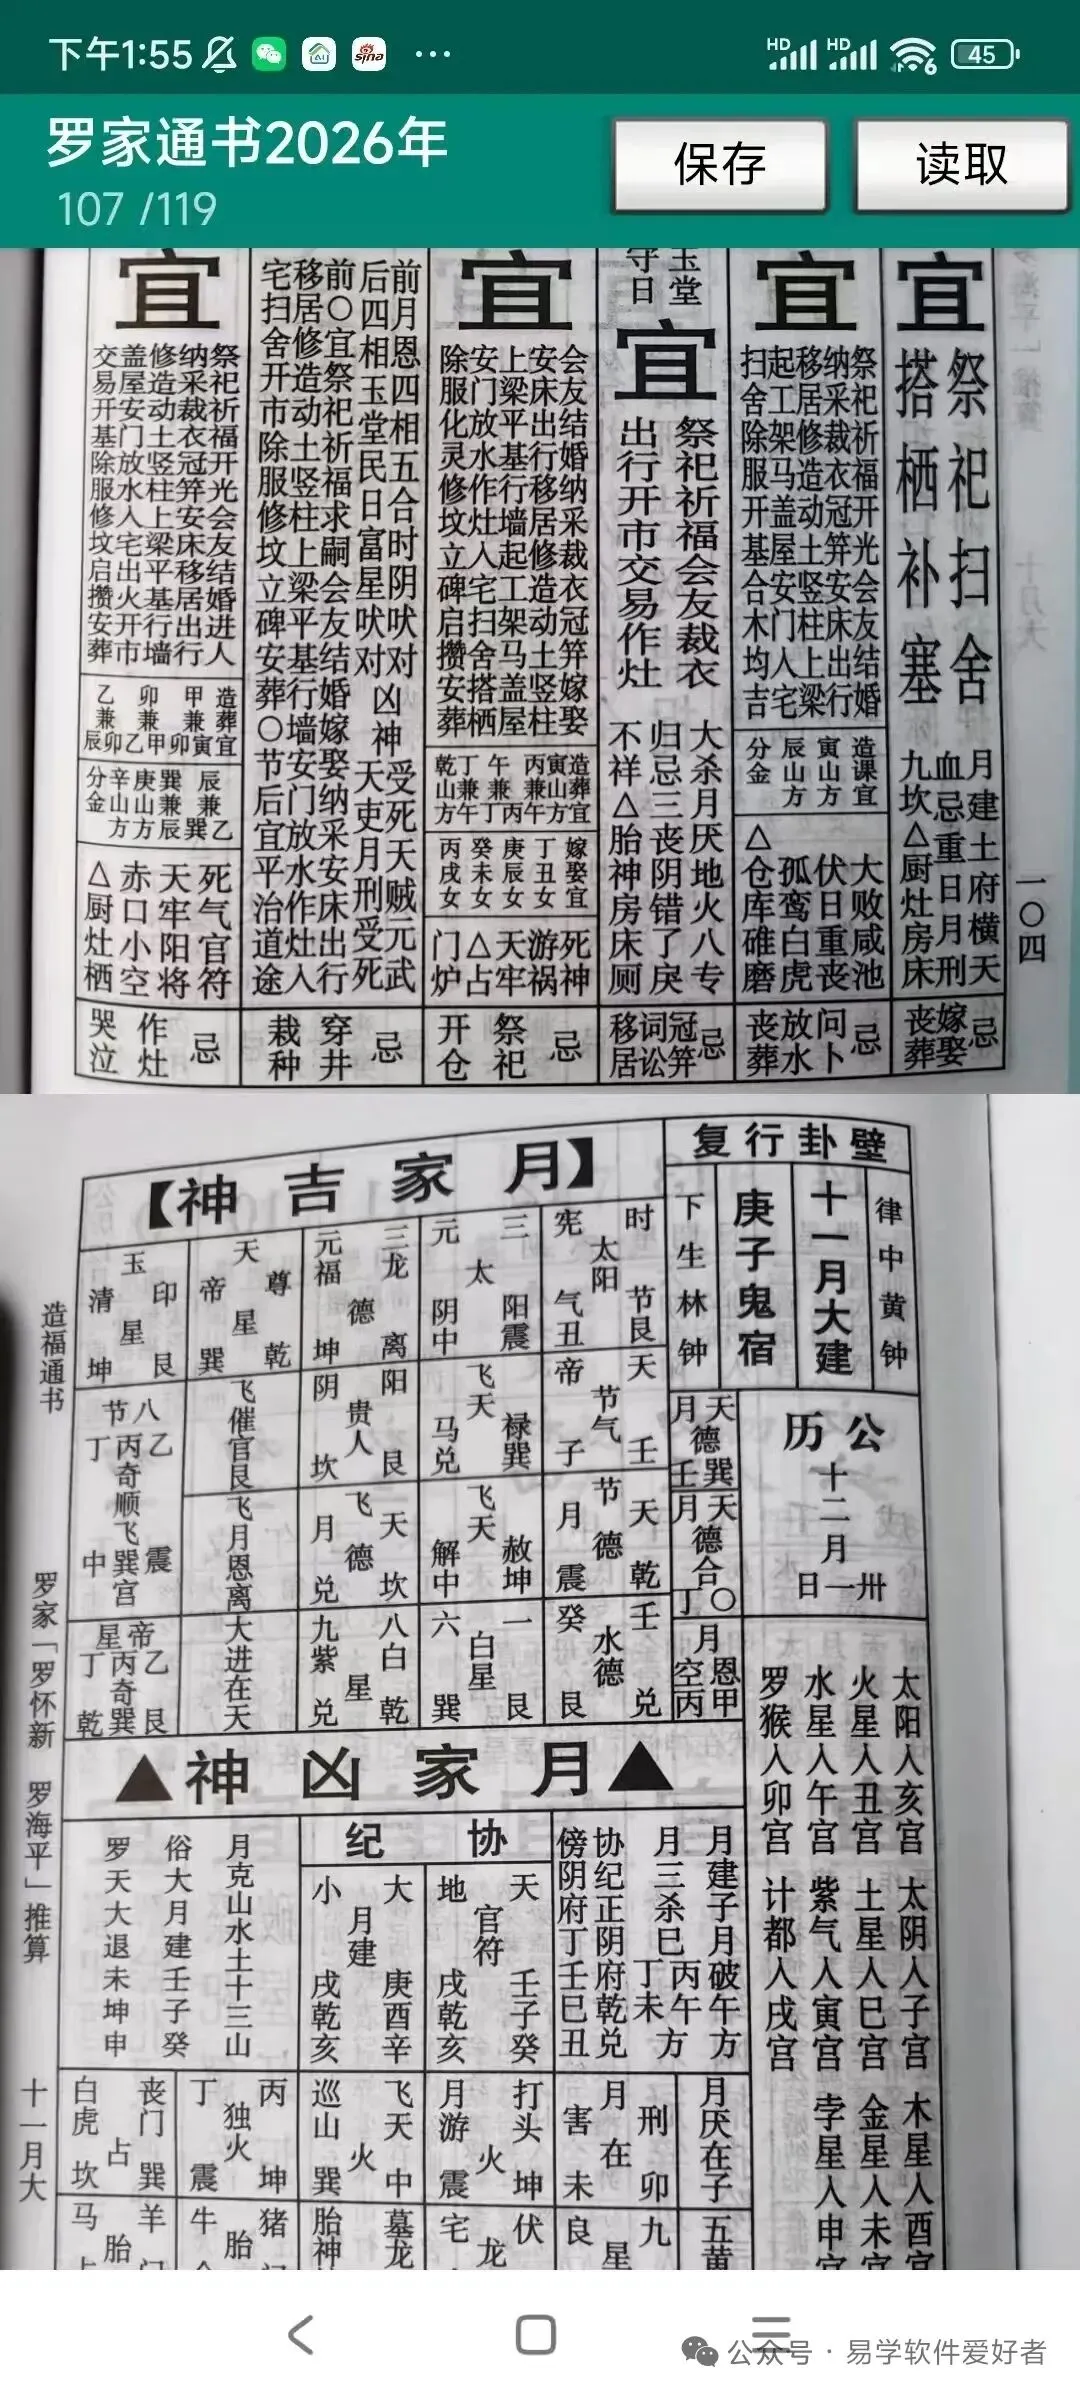 下午1:55
HD HD 6 45
罗家通书2026年
107 /119
保存
读取
一〇四
月建土府横天
血忌重日月刑
九坎△厨灶房床
宜
祭祀扫舍
搭栖补塞
忌
嫁娶
丧葬
宜
祭祀祈福开光会友结婚
纳采裁衣冠笄安床出行
移居修造动土竖柱上梁
起工架马盖屋安门入宅
扫舍除服开基合木均吉
造课宜
寅山方
辰山方
分金
大败咸池
伏日重丧
孤鸾白虎
△仓库碓磨
忌
问卜
放水
丧葬
玉堂
守日
宜
祭祀祈福会友裁衣
出行开市交易作灶
大杀月厌地火八专
归忌三丧阴错了戾
不祥△胎神房床厕
忌
冠笄
词讼
移居
宜
会友结婚纳采裁衣冠笄嫁娶
安床出行移居修造动土竖柱
上梁平基行墙起工架马盖屋
安门放水作灶入宅扫舍搭栖
除服化灵修坟立碑启攒安葬
造葬宜
寅山方
丙兼午
午兼丙
丁兼午
乾山方
嫁娶宜
丁丑女
庚辰女
癸未女
丙戌女
死神
游祸
天牢
△占
门炉
忌
祭祀
开仓
前月恩四相五合时阴吠对 凶神 受死天贼元武
后四相玉堂民日富星吠对 天吏月刑受死
前〇宜祭祀祈福求嗣会友结婚嫁娶纳采安床出行
移居修造动土竖柱上梁平基行墙安门放水作灶入
宅扫舍开市除服修坟立碑安葬〇节后宜平治道途
忌
穿井
栽种
宜
祭祀祈福开光会友结婚进人
纳采裁衣冠笄安床移居出行
修造动土竖柱上梁平基行墙
盖屋安门放水入宅出火开市
交易开基除服修坟启攒安葬
造葬宜
甲兼寅
卯兼甲
乙兼卯
辰
辰兼乙
巽兼辰
庚山方
辛山方
分金
死气官符
天牢阳将
赤口小空
△厨灶栖
忌
作灶
哭泣
复行卦壁
律中黄钟
十一月大建
庚子鬼宿
下生林钟
公历
十二月
卅一日
天德巽
月德壬
天德合〇
月德合丁
月恩甲
月空丙
太阳入亥宫 太阴入子宫 木星入酉宫
火星入丑宫 土星入巳宫 金星入未宫
水星入午宫 紫气入寅宫 孛星入申宫
罗猴入卯宫 计都入戌宫
【神吉家月】
时宪太阳节气艮丑
三元太阳震阴中
三元龙福德离坤
天帝尊星乾巽
玉清印星艮坤
天帝节气壬子
飞天禄巽马兑
阴阳贵人艮坎
飞催官艮
八节乙丙丁奇顺飞震巽中宫
天月节德乾震
飞天赦坤解中
飞天月德坎兑
飞月恩离
壬癸水德兑艮
一六白星艮巽
八白九紫星乾兑
大进在天
帝星乙丙丁奇艮巽乾
▲神凶家月▲
月建子月破午方
月三杀巳丙午丁未方
协纪正阴府乾兑
傍阴府丁壬巳丑
协纪
天官符壬子癸
地官符戌乾亥
大月建庚酉辛
小月建戌乾亥
月克山水土十三山
俗大月建壬子癸
罗天大退未坤申
月厌在子
月刑在卯
害未
打头火坤
月游火震
飞天火中
巡山火巽
丙丁独火坤震
丧门占巽
白虎占坎
造福通书
罗家「罗怀新 罗海平」推算
十一月大
公众号 · 易学软件爱好者